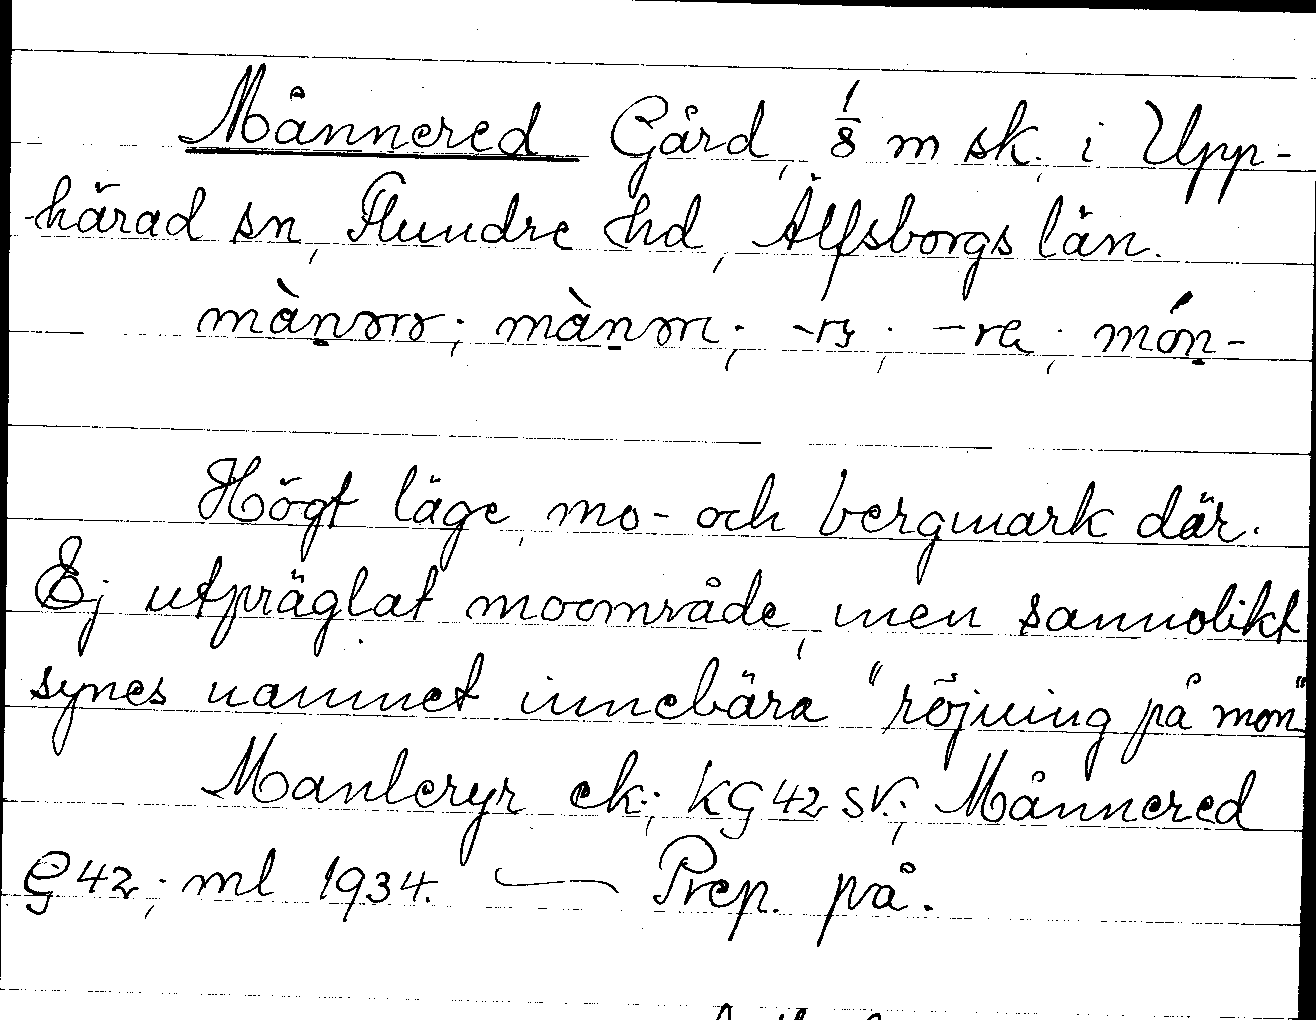 Månnered Gård, 1/8 m sk. i Upp-
härad sn, Flundre hd, Älfsborgs län.
mànərə; mànər; -rs; -ra; món-
Högt läge, mo- och bergmark där.
Ej utpräglat moområde, men sannolikt
synes namnet innebära "röjning på mon"
Manleryr ek.; KG42 SV.; Månnered
G42; ml 1934. — Prep. på.